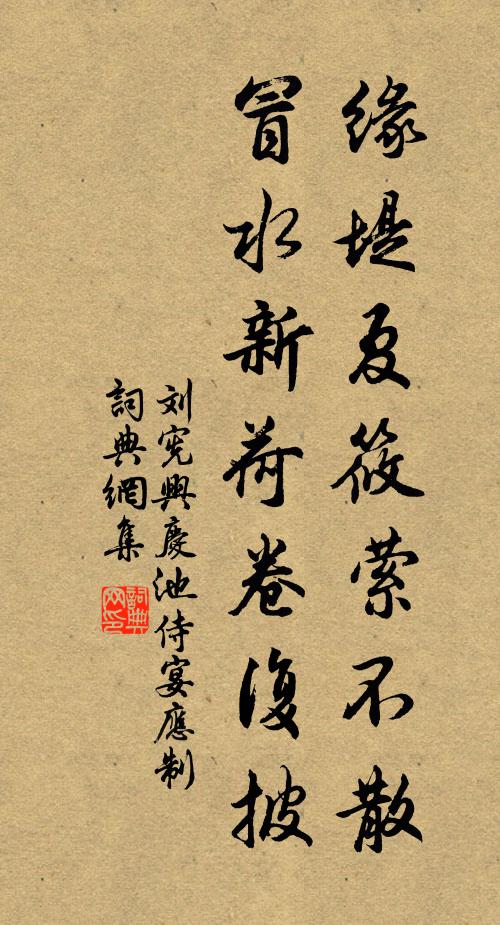 缘堤夏筱萦不散
冒水新荷卷復披
刘宪興慶池侍宴應制
詞典網集
詞典網印